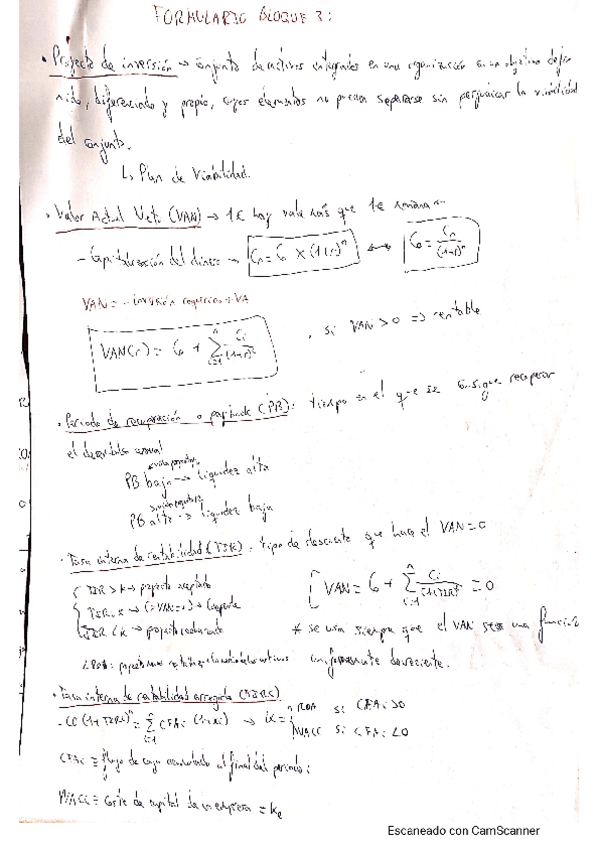 FORMULARIO BLOQUE 3:
• Proyecto de inversión → conjunto de activos integrados en una organización con un objetivo defi
nido, diferenciado y propio, cuyos elementos no pueden separarse sin perjudicar la viabilidad
del conjunto.
↳ Plan de Viabilidad.
• Valor Actual Neto (VAN) → 1€ hoy vale más que 1€ mañana
- Capitalización del dinero → Cn = C0 × (1+r)^n ↔ C0 = Cn/(1+r)^n
VAN = - inversión requerida + VA
VAN(r) = C0 + Σ(i=1, n) Ci/(1+r)^i , si VAN > 0 => rentable
• Periodo de recuperación o payback (PB): tiempo en el que se consigue recuperar
el desembolso
PB bajo → liquidez alta
PB alto → liquidez baja
• Tasa interna de rentabilidad (TIR): tipo de descuento que hace el VAN = 0
TIR > k → proyecto aceptado
TIR = k → (VAN = 0)
TIR < k → proyecto
VAN = C0 + Σ(i=1, n) Ci/(1+TIR)^i = 0
* se usa siempre que el VAN sea una función
uniformemente decreciente.
• Tasa interna de rentabilidad corregida (TIRC)
CFAi ≡ flujo de caja acumulado al final del periodo i
si CFAi > 0
WACC si CFAi < 0
WACC ≡ coste de capital de la empresa = ke
Escaneado con CamScanner